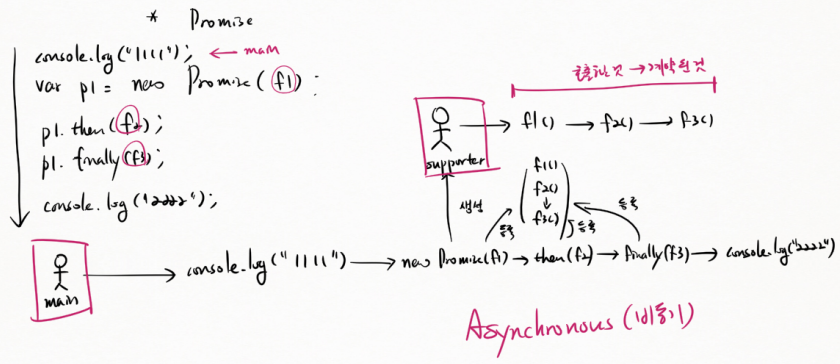 * Promise
console.log("1111"); ← main
var p1 = new Promise(f1);
p1.then(f2);
p1.finally(f3);
console.log("2222");
호출할 것 → 계약된 것
supporter → f1() → f2() → f3()
생성
등록
f1()
f2()
↓
f3()
등록
등록
main → console.log("1111") → new Promise(f1) → then(f2) → finally(f3) → console.log("2222")
Asynchronous (비동기)